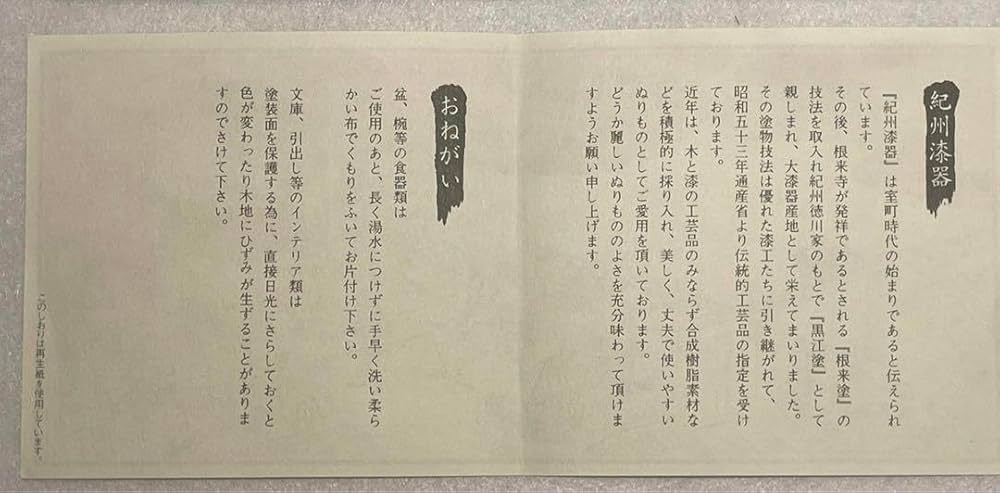 紀州漆器
『紀州漆器』は室町時代の始まりであると伝えられ
ています。
その後、根来寺が発祥であるとされる『根来塗』の
技法を取入れ紀州徳川家のもとで『黒江塗』として
親しまれ、大漆器産地として栄えてまいりました。
その塗物技法は優れた漆工たちに引き継がれて、
昭和五十三年通産省より伝統的工芸品の指定を受け
ております。
近年は、木と漆の工芸品のみならず合成樹脂素材な
どを積極的に採り入れ、美しく、丈夫で使いやすい
ぬりものとしてご愛用を頂いております。
どうか麗しいぬりもののよさを充分味わって頂けま
すようお願い申し上げます。
おねがい
盆、椀等の食器類は
ご使用のあと、長く湯水につけずに手早く洗い柔ら
かい布でくもりをふいてお片付け下さい。
文庫、引出し等のインテリア類は
塗装面を保護する為に、直接日光にさらしておくと
色が変わったり木地にひずみが生ずることがありま
すのでさけて下さい。
このしおりは再生紙を使用しています。